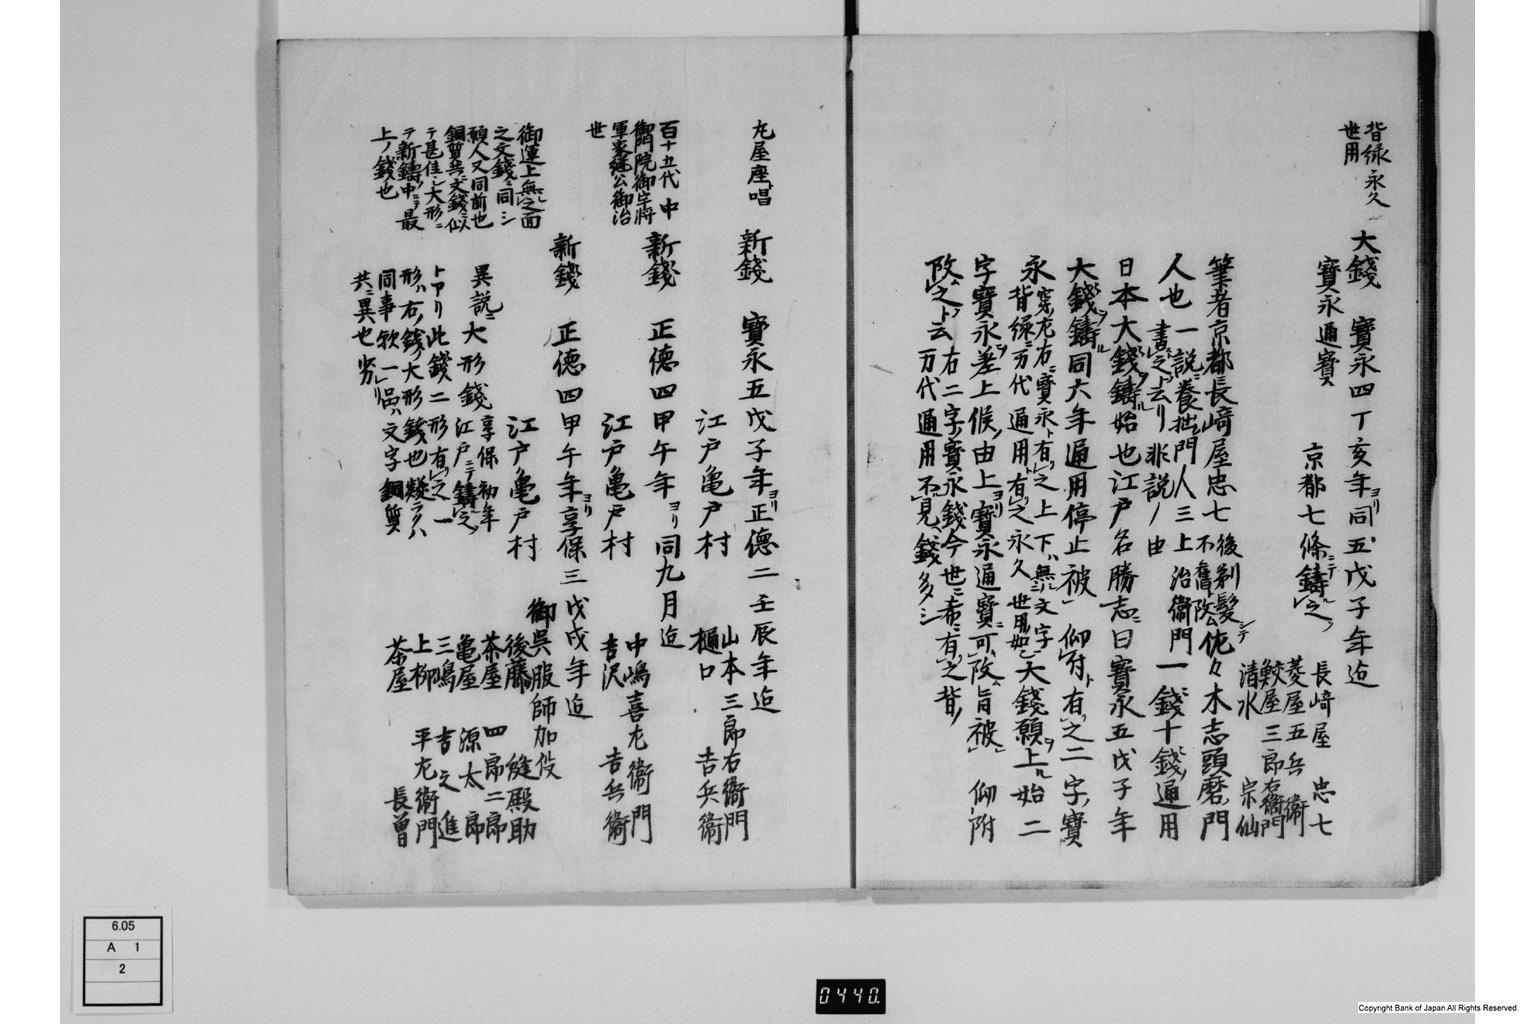 背縁永久
世用
大錢 寳永四丁亥年ヨリ同五戊子年迄
寳永通寳 京都七條ニテ鑄之
長﨑屋 忠七
菱屋五兵衞
鮫屋三郎右衞門
清水 宗仙
筆者京都長﨑屋忠七後剃髪シテ
不舊改佐々木志頭磨門
人也一説ニ養拙門人三上治衞門一錢十錢通用
書之ト云リ非説ノ由
日本大錢鑄始也江戸名勝志ニ曰寳永五戊子年
大錢鑄同大年通用停止被 仰付有之二字寳
永 穿左右ニ寳永ト有之上下ハ無文字
背縁ニ万代通用ト有之永久世用如
大錢願上ル始二
字寳永差上候由上ヨリ寳永通寳ニ可改旨被 仰附
改之ト云 右二字寳永錢今世ニ希ニ有之背ノ
万代通用不見錢多シ
九屋座唱 新錢 寳永五戊子年ヨリ正徳二壬辰年迄
江戸亀戸村 山本三郎右衞門
樋口 吉兵衞
百十五代 中
御門院御宇将
軍家継公御治
世
新錢 正徳四甲午年ヨリ同九月迄
江戸亀戸村 中嶋喜左衞門
吉沢 吉兵衞
新錢 正徳四甲午年ヨリ享保三戊戌年迄
江戸亀戸村 御呉服師加役
後藤 縫殿助
茶屋 四郎二郎
亀屋 源太郎
三嶋 吉之進
上柳 平左衞門
茶屋 長曽
御運上無之面
之文錢ニ同シ
願人又同前也
銅質共ニ文錢ニ似
テ甚佳シ大形ニ
テ新鑄中ニテ最
上ノ錢也
異説ニ大形錢 享保初年
江戸ニテ鑄之
トアリ此錢二形有之一
形ハ右ノ錢ノ大形錢也疑ラクハ
同事歟一品ハ文字銅質
共ニ異也劣リ
6.05
A 1
2
0440.
Copyright Bank of Japan All Rights Reserved.